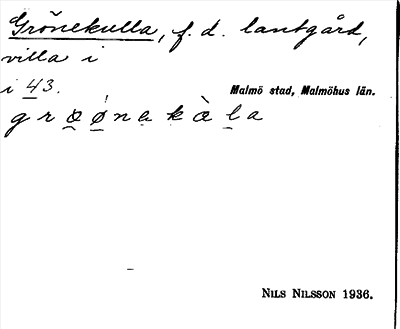 Grönekulla, f. d. lantgård,
villa i
i 43. Malmö stad, Malmöhus län.
NILS NILSSON 1936.